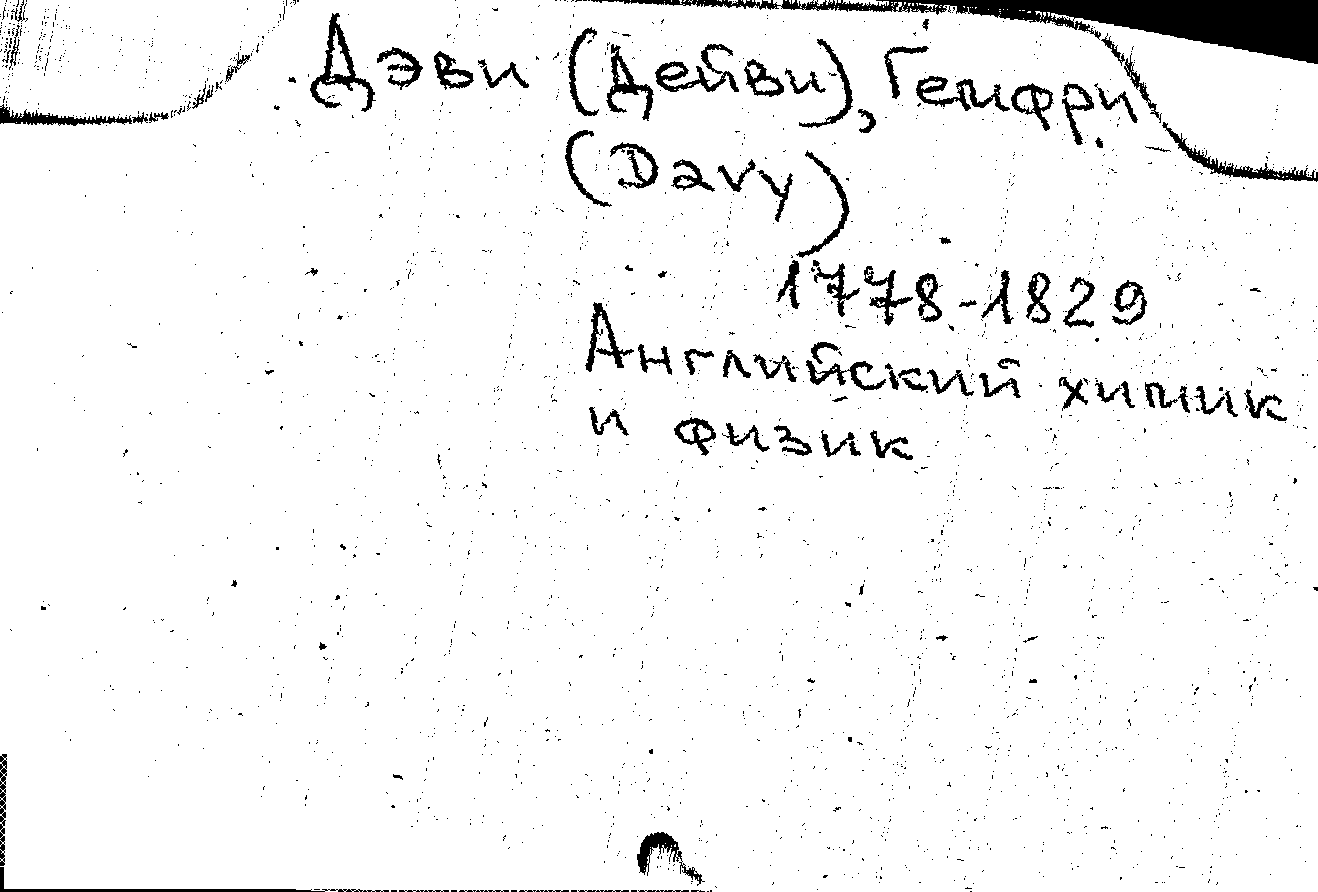 Дэви (Дейви), Гемфри
(Davy)
1778-1829
Английский химик
и физик